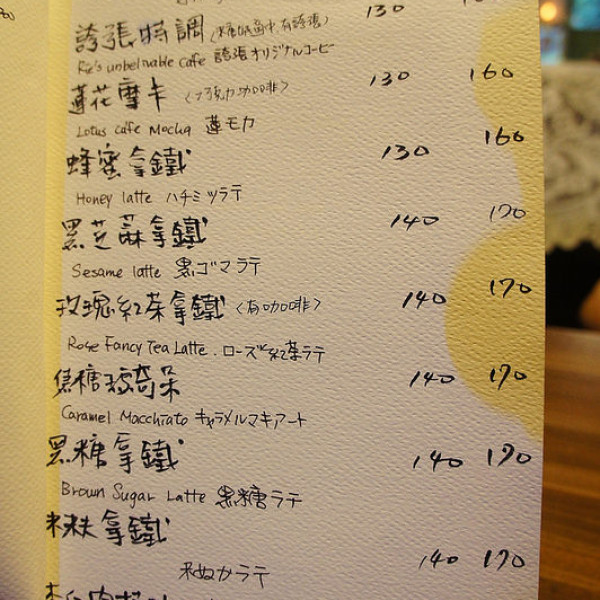 130
誇張特調(糖份適中,有誇張)
Riz's unbelivable cafe 誇張オリジナルコーヒー
蓮花摩卡〈巧克力咖啡〉 130 160
Lotus cafe Mocha 蓮モカ
蜂蜜拿鐵 130 160
Honey latte ハチミツラテ
黑芝麻拿鐵 140 170
Sesame latte 黒ゴマラテ
玫瑰紅茶拿鐵〈有咖啡〉 140 170
Rose Fancy Tea Latte . ローズ紅茶ラテ
焦糖瑪奇朵 140 170
Caramel Macchiato キャラメルマキアート
黑糖拿鐵 140 170
Brown Sugar Latte 黒糖ラテ
米麩拿鐵
米ぬかラテ 140 170